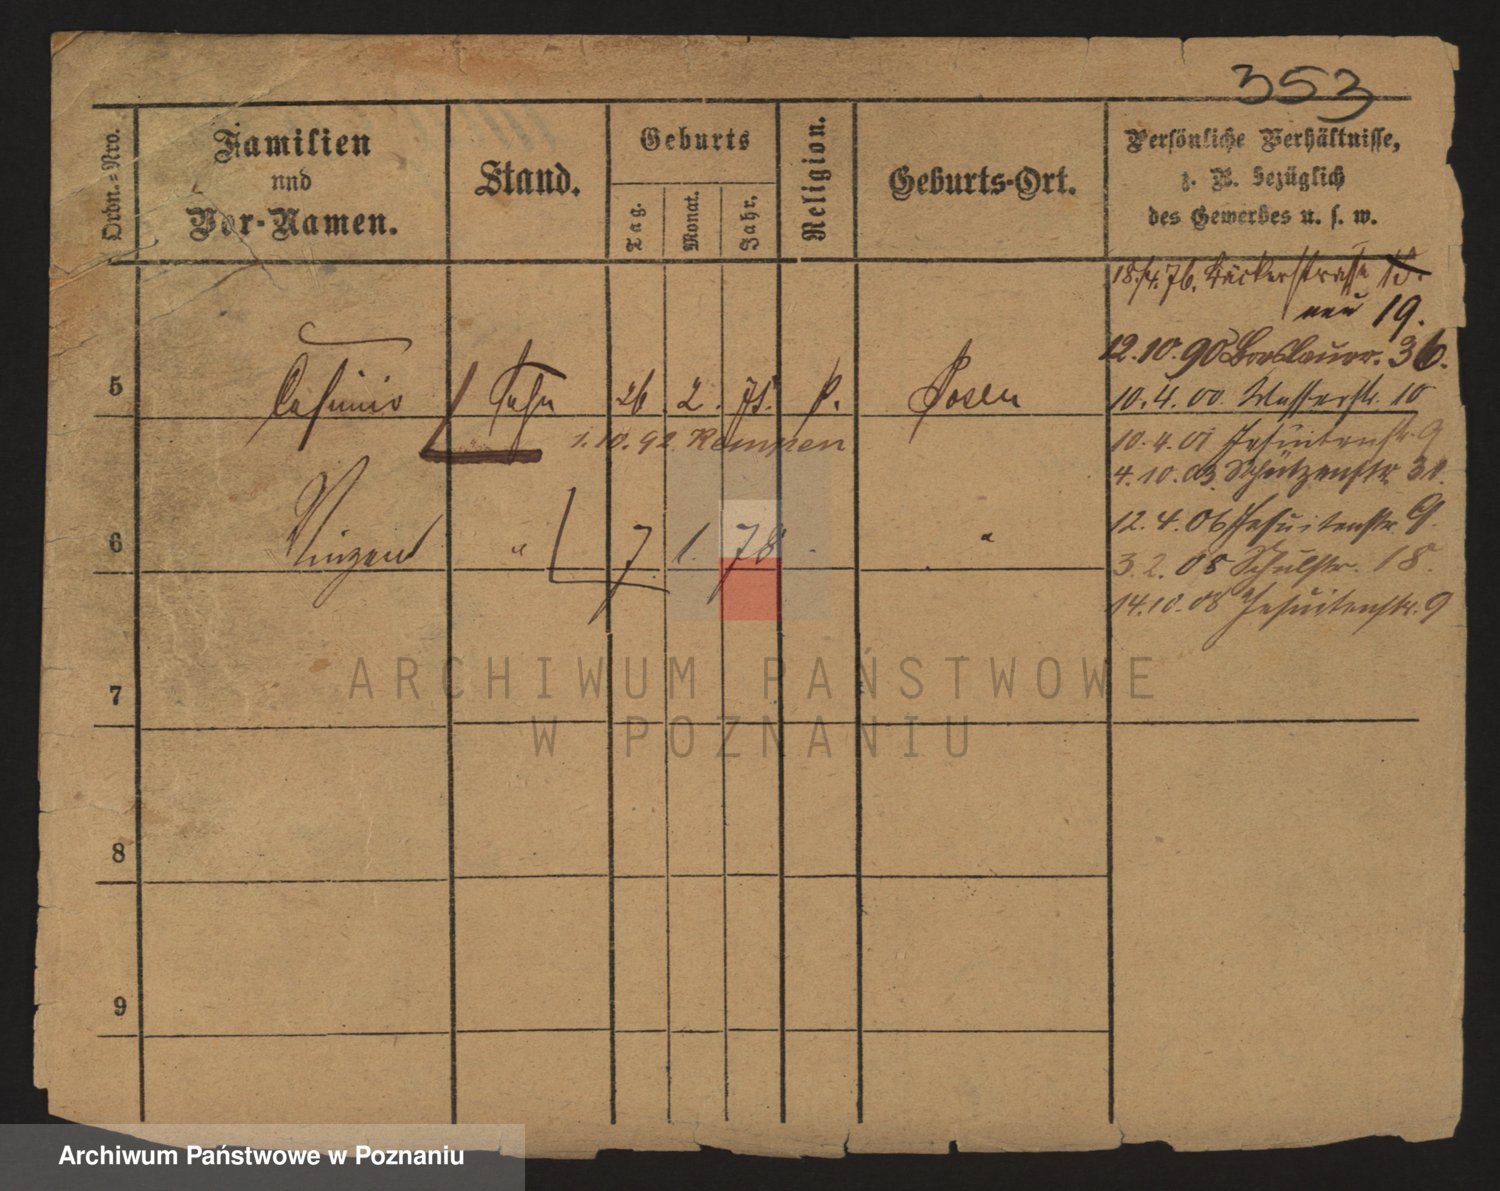 353
Ordn.-Nro.
Familien
und
Vor-Namen.
Stand.
Geburts
Tag.
Monat.
Jahr.
Religion.
Geburts-Ort.
Persönliche Verhältnisse,
z. B. bezüglich
des Gewerbes u. s. w.
18./4. 76. Bäckerstrasse 13.
neu 19.
12.10.90 Breslauer. 36.
5 Casimir Sohn 26 2. 75. k. Posen
10.4.00 Wasserstr. 10
1.10.92. Kempen
10.4.01 Jesuitenstr. 9
4.10.03. Schützenstr. 31.
6 Vinzent " 7. 1. 78 "
12.4.06 Jesuitenstr. 9.
3.2.08 Schulstr. 18.
14.10.08 Jesuitenstr. 9
7
8
9
ARCHIWUM PAŃSTWOWE
W POZNANIU
Archiwum Państwowe w Poznaniu